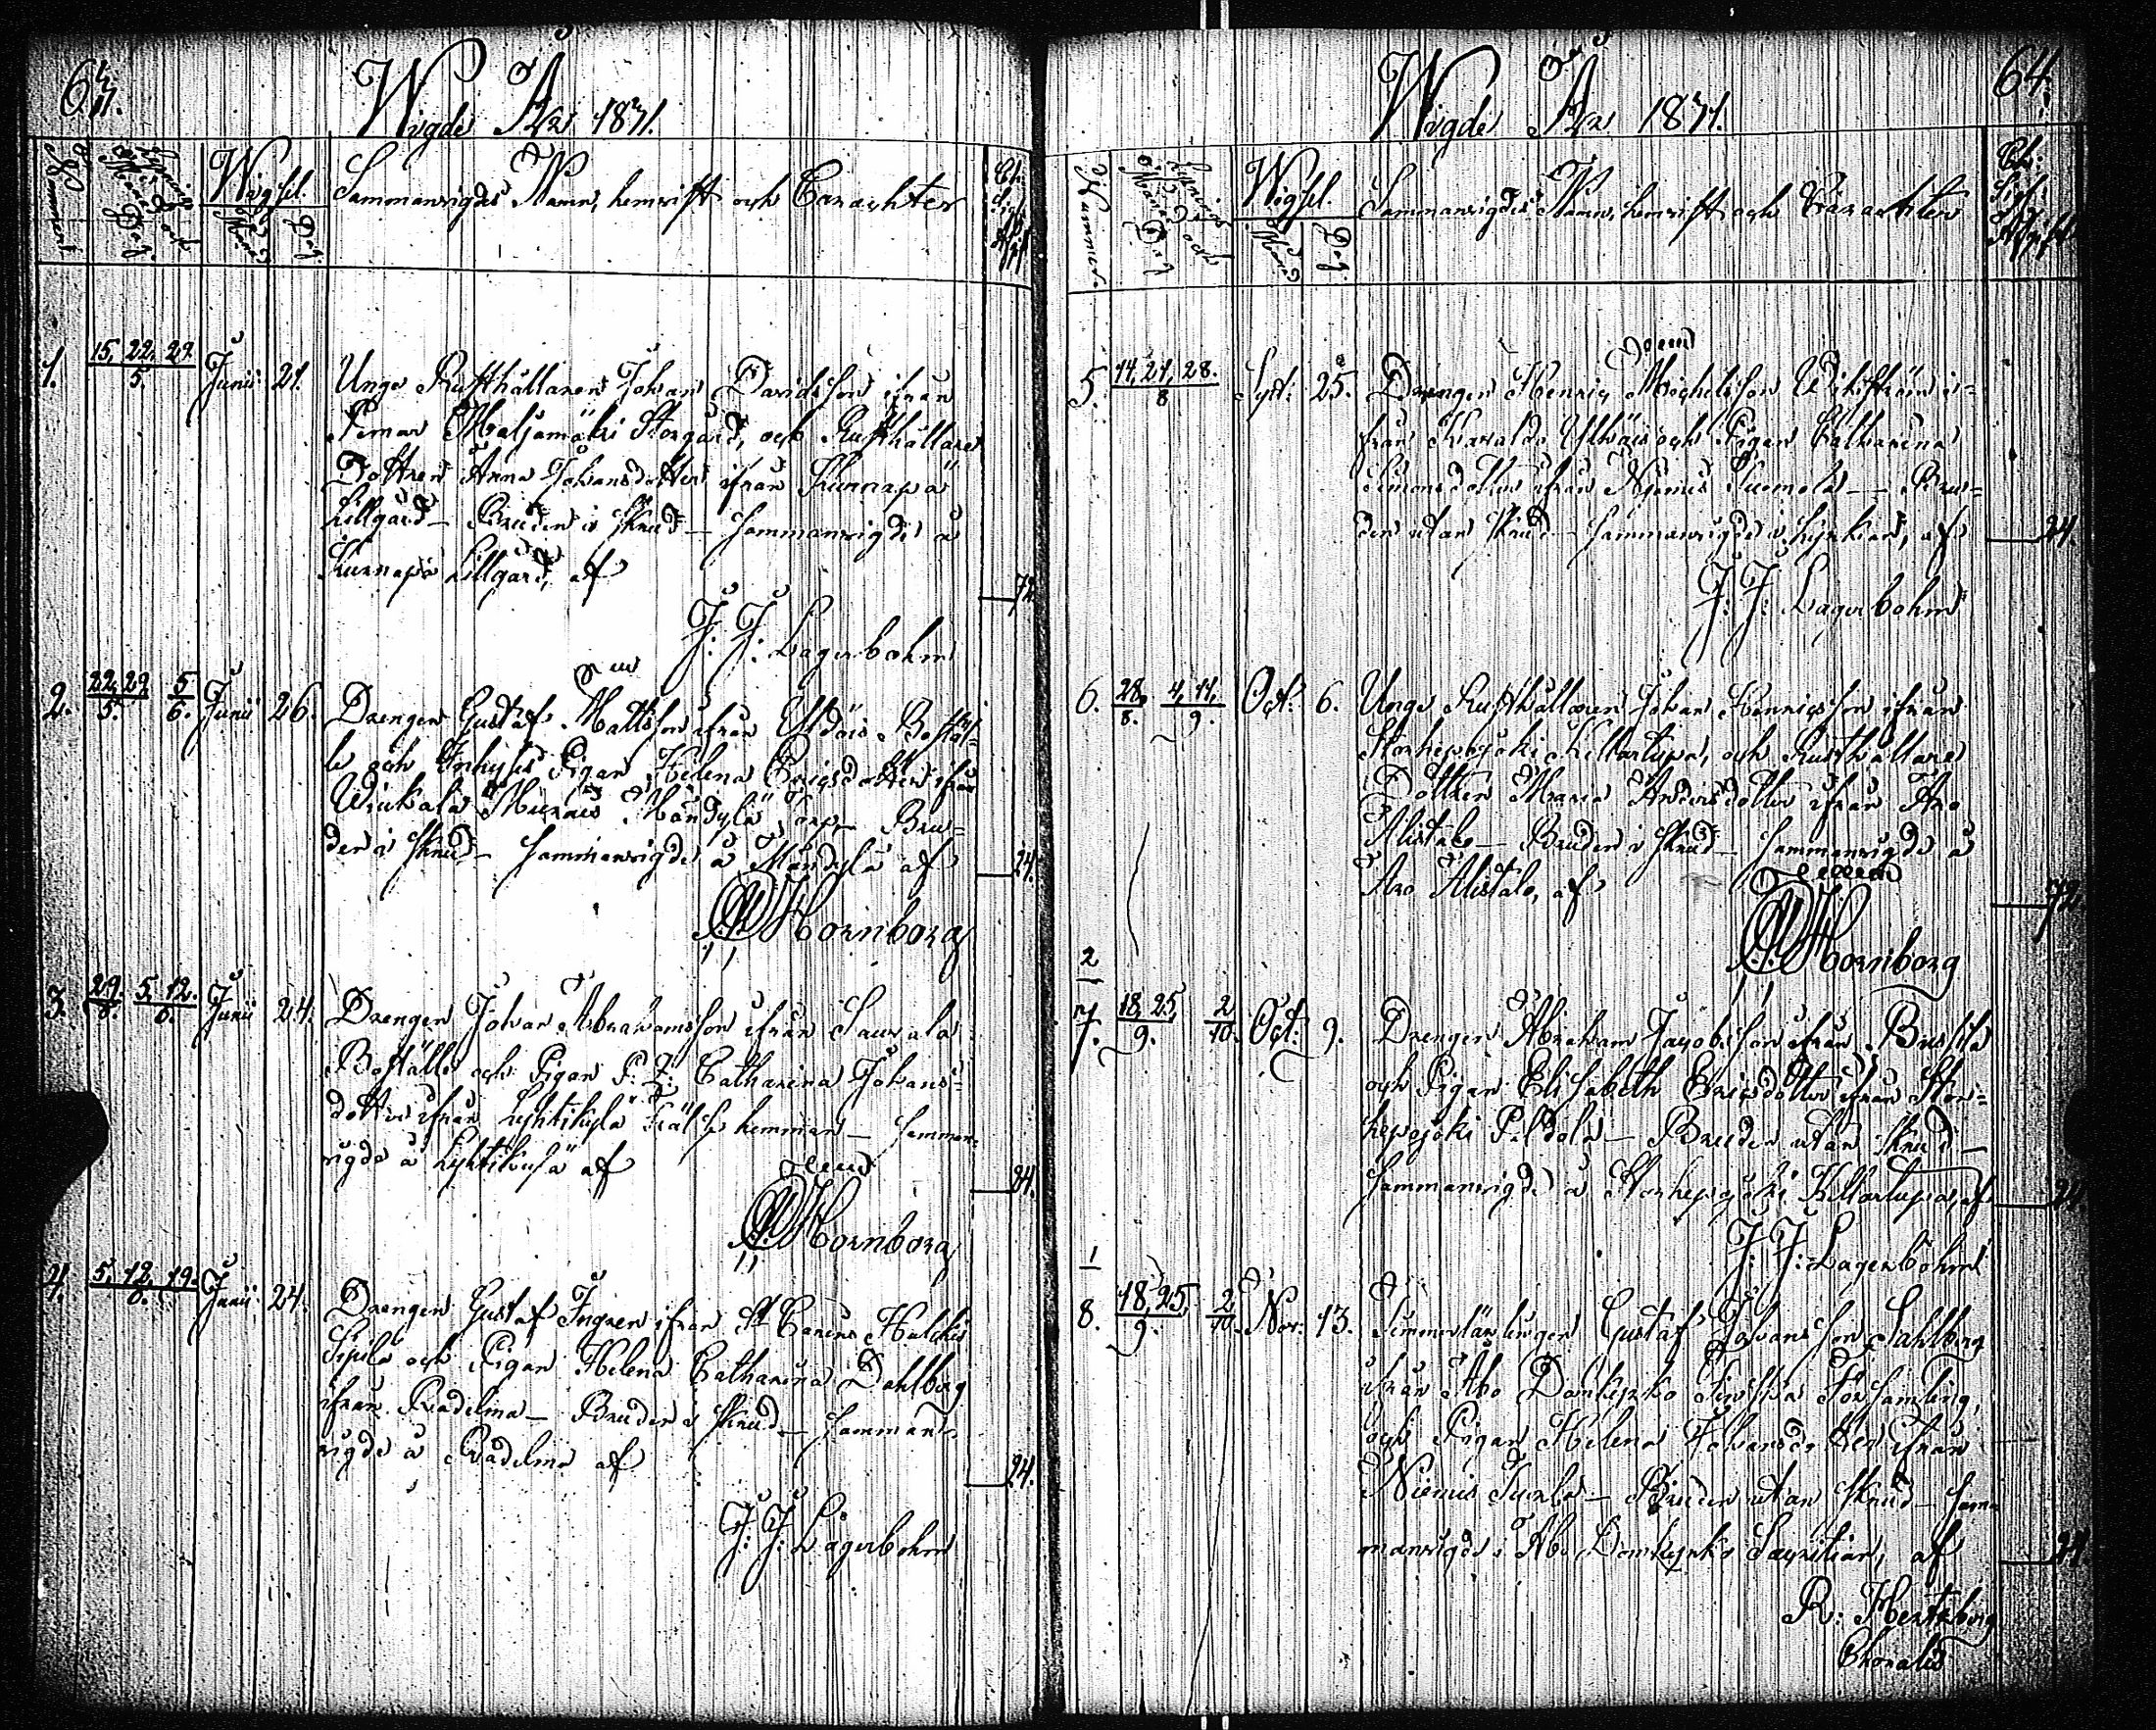 63.
Wigde År 1831.
Nummer
Lysnings Månad och Dag.
Wigsel.
Månad
Dag.
Sammanvigdes Namn, hemvist och Carachter
1.
15, 22, 29.
5.
Junii
21.
Unge Rusthållaren Johan Davidsson ifrån
Nemar Maljamäki Storgård, och Rusthållare
Dottren Anna Johansdotter ifrån Kurnapä
Lillgård – Bruden i skrud – sammanvigde å
Kurnapä Lillgård, af
72.
J: J: Lagerbohm
2.
22, 29 5
5. 6.
Junii
26.
Drengen Gustaf Mattsson ifrån Yldöis Bostäl-
le och Inhyses Pigan Helena Ericsdotter ifrån
Torp – Bru-
den i skrud – sammanvigde å Mändylä af
24.
Hornborg
3.
29. 5, 12.
6.
Junii
24.
Drengen Johan Abrahamsson ifrån Saurala
Boställe och Pigan Catharina Johans-
dotter ifrån Frälse hemman – samman-
vigde å af
24.
Hornborg
4.
5, 12, 19.
6.
Junii
24.
Drengen Gustaf Ingren ifrån St Carins Halckis
Sipilä och Pigan Helena Catharina Dahlberg
ifrån Radelma – Bruden i skrud – samman-
vigde å Radelma af
24.
J: J: Lagerbohm
64.
Wigde År 1831.
Nummer
Lysnings Månad och Dag
Wigsel.
Månad
Dag.
Sammanvigdes Namn, hemvist och Carachter
5.
14, 21, 28.
8
Sept:
25.
Drengen Henric Michelsson Wikström i-
från Karalds och Pigan Catharina
Simonsdotter ifrån Niemis Tuomola – Bru-
den utan skrud – sammanvigde i kyrkian, af
24.
J: J: Lagerbohm
6.
28, 4, 11.
8. 9.
Oct:
6.
Unge Rusthållaren Johan Henricsson ifrån
Storhepojoki Killartupa, och Rusthållare
Dottren Maria Andersdotter ifrån Aro
Alistalo – Bruden i skrud – sammanvigde å
Aro Alistalo, af
72
Hornborg
2
7.
18, 25, 2
9. 10.
Oct:
9.
Drengen Abraham Jacobsson ifrån
och Pigan Elisabeth Ericsdotter ifrån Stor-
hepojoki Pildola – Bruden utan skrud –
sammanvigde å Storhepojoki Killartupa, af
24.
J: J: Lagerbohm
1
8.
18, 25, 2
9. 10.
Nov:
13.
Timmerlärlingen Gustaf Johansson Sahlberg
ifrån Åbo Domkyrko Finska Församling,
och Pigan Helena Johansdotter ifrån
Niemis – Bruden utan skrud – sam-
manvigde i Åbo Domkyrko Sacristian, af
24
R: Hertzberg